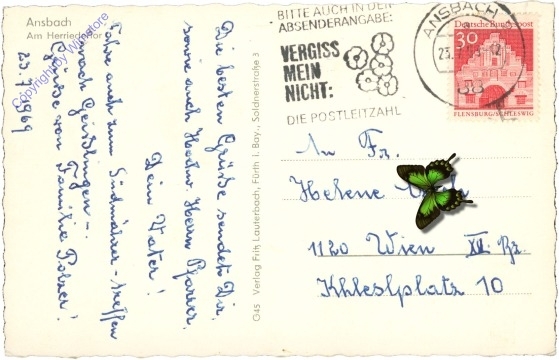 Ansbach
Am Herriedertor
Copyright by Winstore
23.7.1969
Die besten Grüße sendet Dir,
sowie auch Hochw. Herrn Pfarrer,
Dein Vater!
Fahre auch zum Südmährer-treffen
nach Geißlingen -.
Grüße von Familie Polzer!
O45 Verlag Frith Lauterbach, Fürth i. Bay., Soldnerstraße 3
BITTE AUCH IN DER
ABSENDERANGABE:
VERGISS
MEIN
NICHT:
DIE POSTLEITZAHL
ANSBACH
Deutsche Bundespost
30
FLENSBURG/SCHLESWIG
An Fr.
Helene
1120 Wien XII. Bz.
Khleslplatz 10